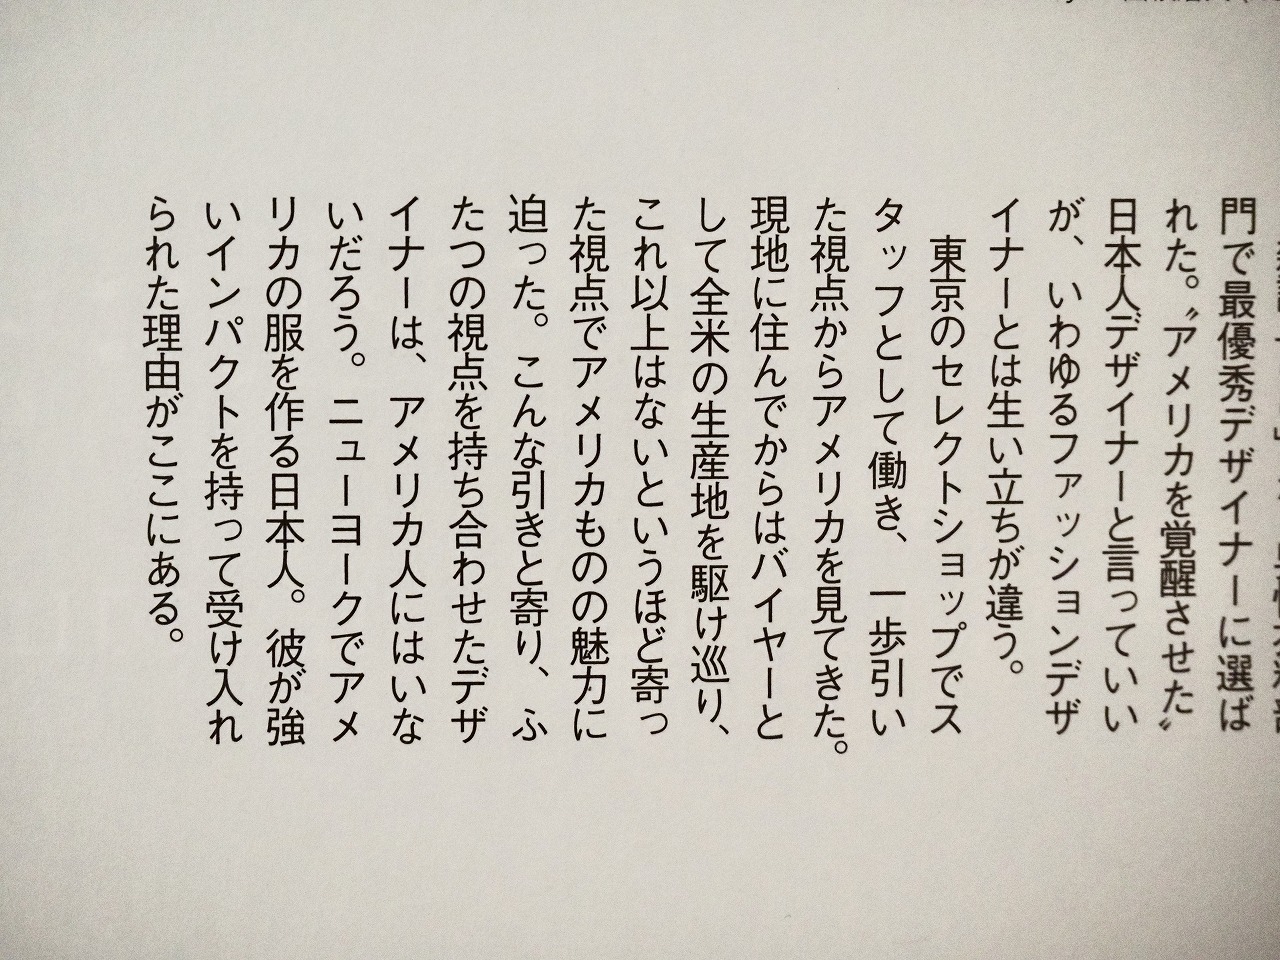 門で最優秀デザイナーに選ば
れた。〝アメリカを覚醒させた〟
日本人デザイナーと言っていい
が、いわゆるファッションデザ
イナーとは生い立ちが違う。
東京のセレクトショップでス
タッフとして働き、一歩引い
た視点からアメリカを見てきた。
現地に住んでからはバイヤーと
して全米の生産地を駆け巡り、
これ以上はないというほど寄っ
た視点でアメリカものの魅力に
迫った。こんな引きと寄り、ふ
たつの視点を持ち合わせたデザ
イナーは、アメリカ人にはいな
いだろう。ニューヨークでアメ
リカの服を作る日本人。彼が強
いインパクトを持って受け入れ
られた理由がここにある。